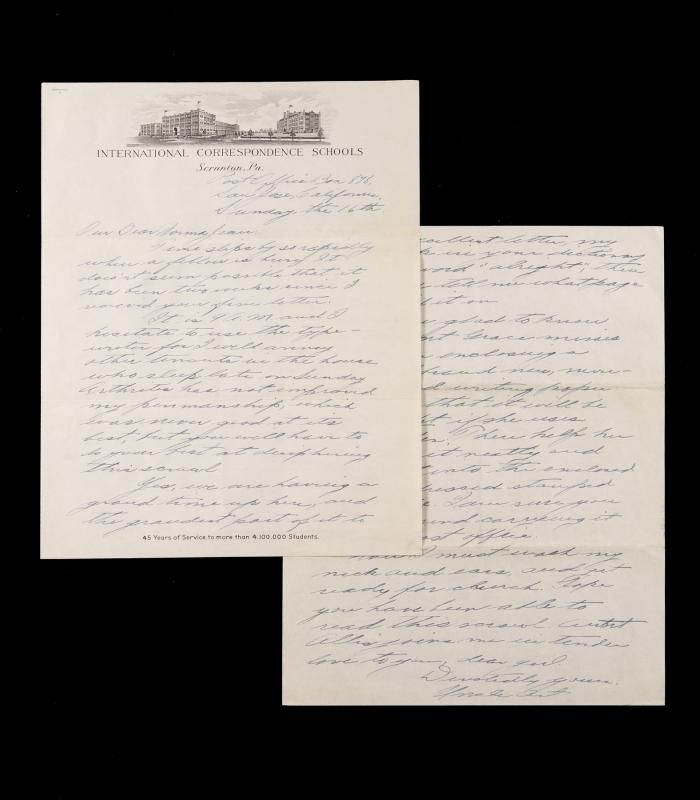 INTERNATIONAL CORRESPONDENCE SCHOOLS
Scranton, Pa.
Post Office Box 876,
San Jose, California,
Sunday the 16th.
Our Dear Norma Jean:
Time slips by so rapidly
when a fellow is busy. It
doesn't seem possible that it
has been two weeks since I
received your fine letter.
It is 7 A.M. and I
hesitate to use the type-
writer for I would annoy
other tenants in the house
who sleep late on Sunday
Arthritis has not improved
my penmanship, which
was never good at its
best, but you will have to
do your best at deciphering
this scrawl
Yes, we are having a
grand time up here, and
the grandest part of it is
45 Years of Service to more than 4,100,000 Students.
excellent letter, my
in your dictionary
word "alright", then
tell me what page
it on
glad to know
Grace
enclosing a
brand new,
writing paper
that it will be
if she uses
Then help her
it neatly and
into the enclosed
addressed stamped
I am sure you
mind carrying it
post office.
Now I must wash my
neck and ears, and get
ready for church. Hope
you have been able to
read this scrawl. Aunt
Allis joins me in tender
love to you, dear girl.
Devotedly yours.
Uncle Art.